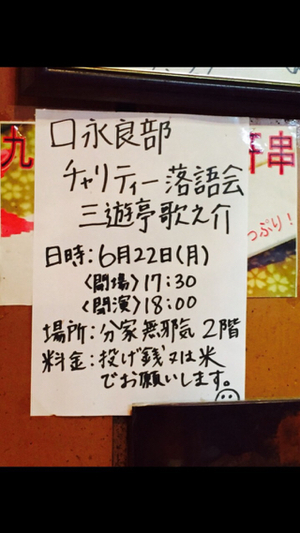 口永良部
チャリティー落語会
三遊亭歌之介
日時:6月22日(月)
〈開場〉17:30
〈開演〉18:00
場所:分家無邪気 2階
料金:投げ銭又は米
でお願いします。
九
串
っぷり!